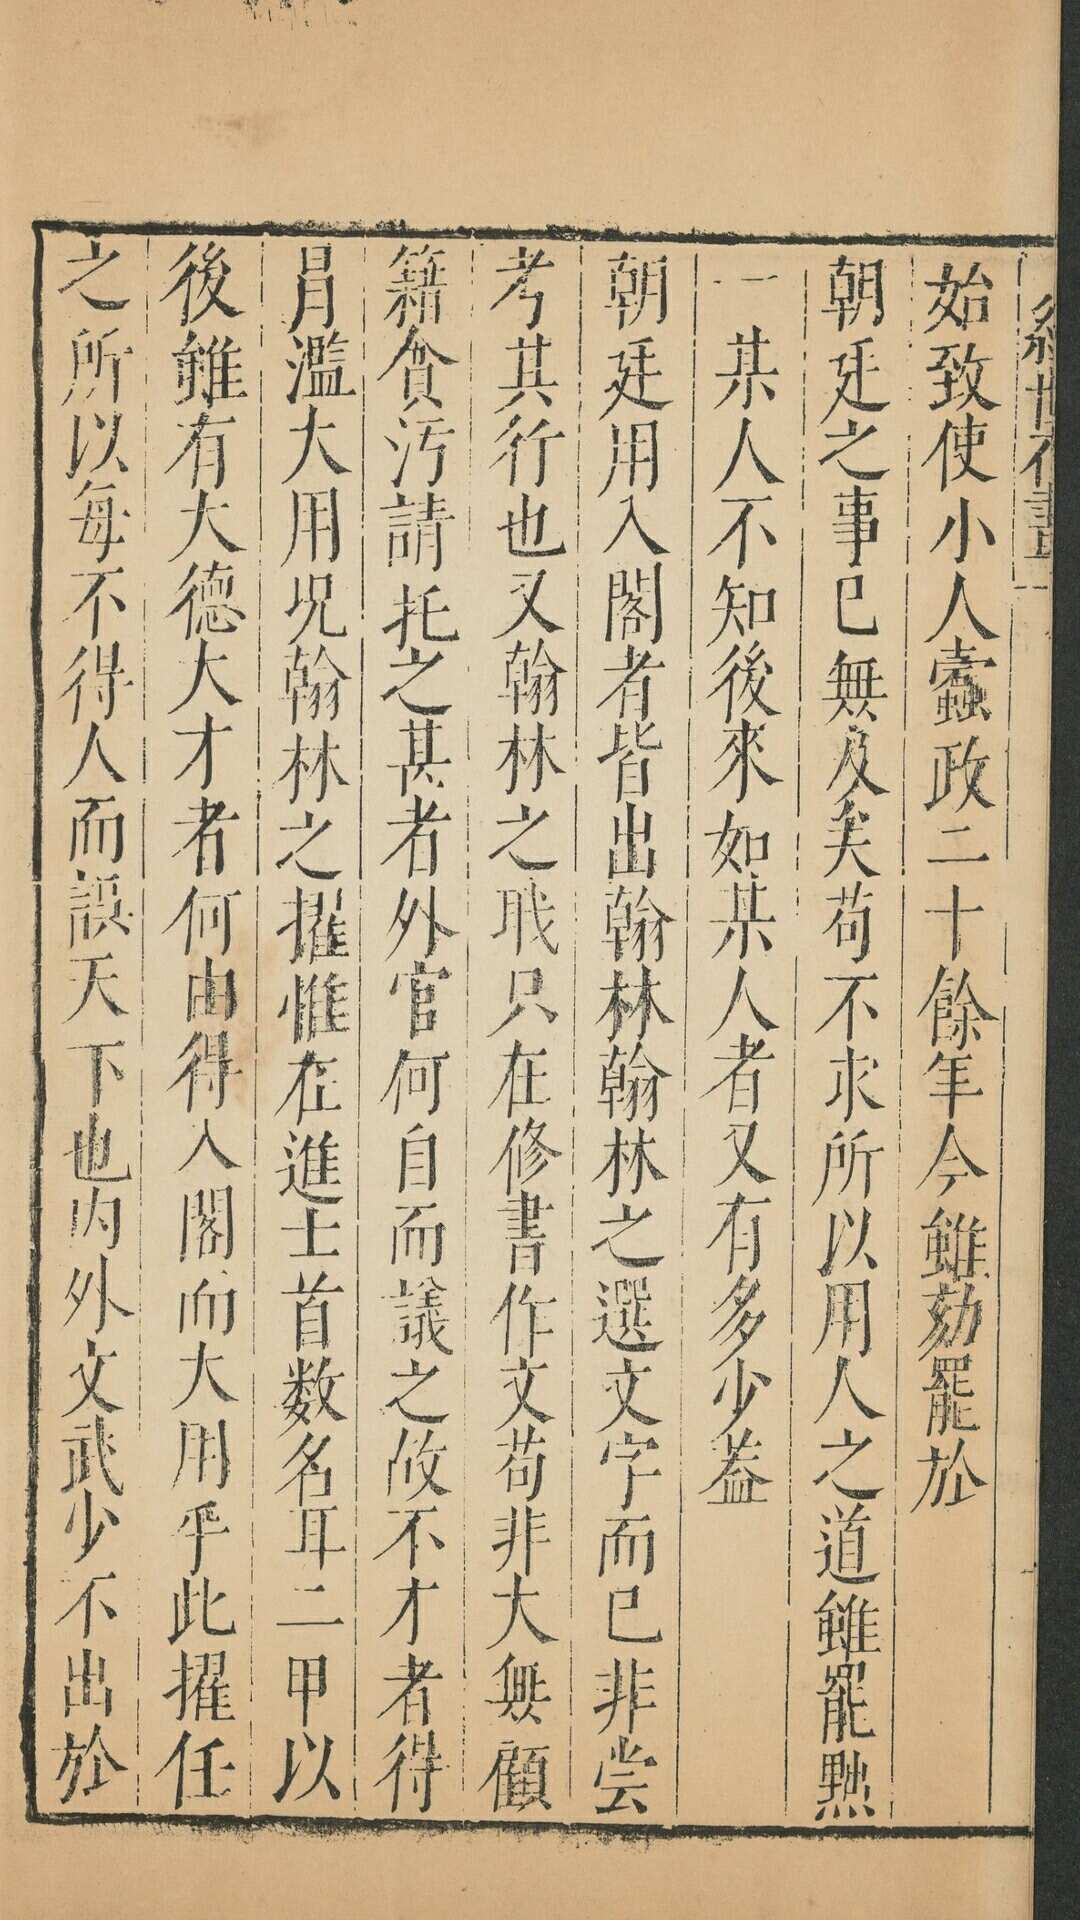 始致使小人蠹政二十餘年今雖劾罷於
朝廷之事已無及矣苟不求所以用人之道雖罷黜
一某人不知後來如某人者又有多少葢
朝廷用入閣者皆出翰林翰林之選文字而已非嘗
考其行也又翰林之職只在修書作文苟非大無顧
籍貪污請托之甚者外官何自而議之故不才者得
冒濫大用况翰林之擢惟在進士首数名耳二甲以
後雖有大德大才者何由得入閣而大用乎此擢任
之所以每不得人而誤天下也内外文武少不出於